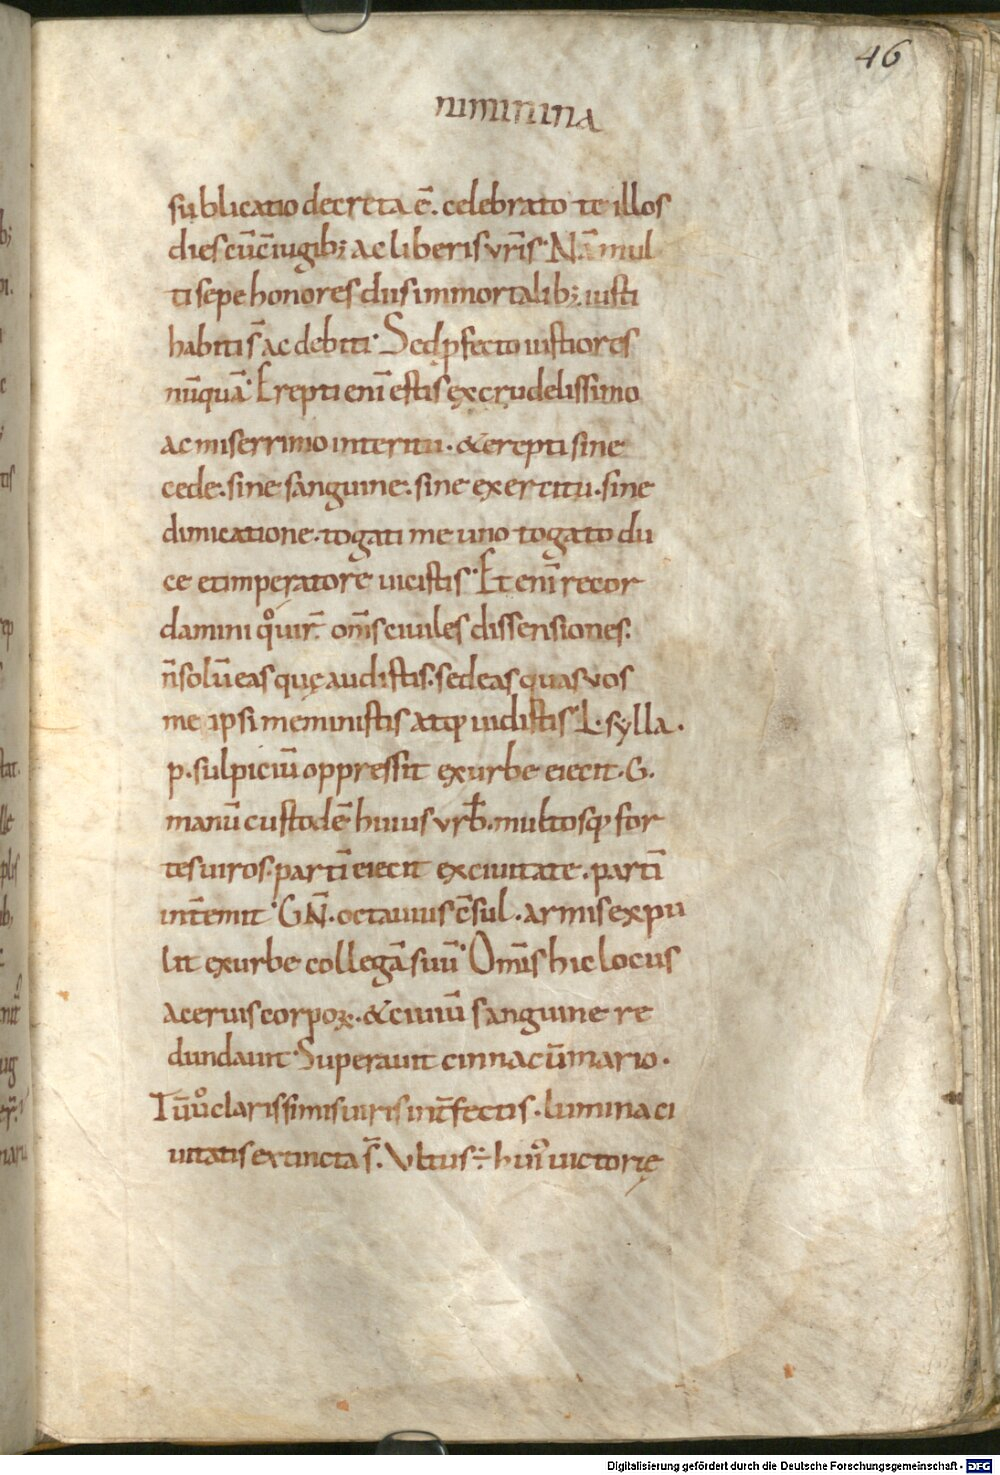 46
niminina
sublicatio decreta ē. celebrato te illos
dies cū c̄iugib; ac liberis vr̄is· Nā mul
ti sepe honores diis immortalib; iusti
habiti s̄ ac debiti· Sed ꝓfecto iustiores
nūquā· Erepti enī estis ex crudelissimo
ac miserrimo interitu. & erepti sine
cede. sine sanguine. sine exercitu. sine
dimicatione. togati me uno togato du
ce et imperatore uicistis· Et enī recor
damini qͦ uir̄ om̄s ciuiles dissensiones.
n̄ solū eas quę audistis. sed eas quas vos
me ipsi meministis atqꝫ uidistis· L. sylla.
p. sulpiciū oppressit ex urbe eiecit. G.
manū custodē huius vrb̄. multosqꝫ for
tes uiros. partī eiecit ex ciuitate. partī
int̄emit· GN̄. octauius c̄sul. armis expu
lit ex urbe collegā suū· Om̄is hic locus
aceruis corpoꝝ. & ciuiū sanguine re
dundauit· Superauit cinna cū mario.
Tū uͦ clarissimis uiris int̄fectis. lumina ci
uitatis extincta s̄. Vltus ÷ huiͦ uictorię
Digitalisierung gefördert durch die Deutsche Forschungsgemeinschaft - DFG